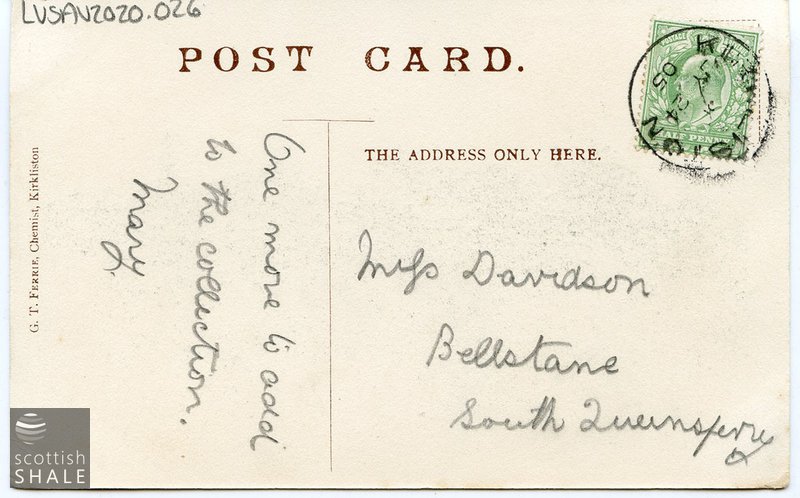 LVSAV2020.026
POST CARD.
THE ADDRESS ONLY HERE.
One more to add
to the collection.
Mary.
Miss Davidson
Bellstane
South Queensferry
G. T. FERRIE, Chemist, Kirkliston
POSTAGE
HALF PENNY
24
05
scottish
SHALE